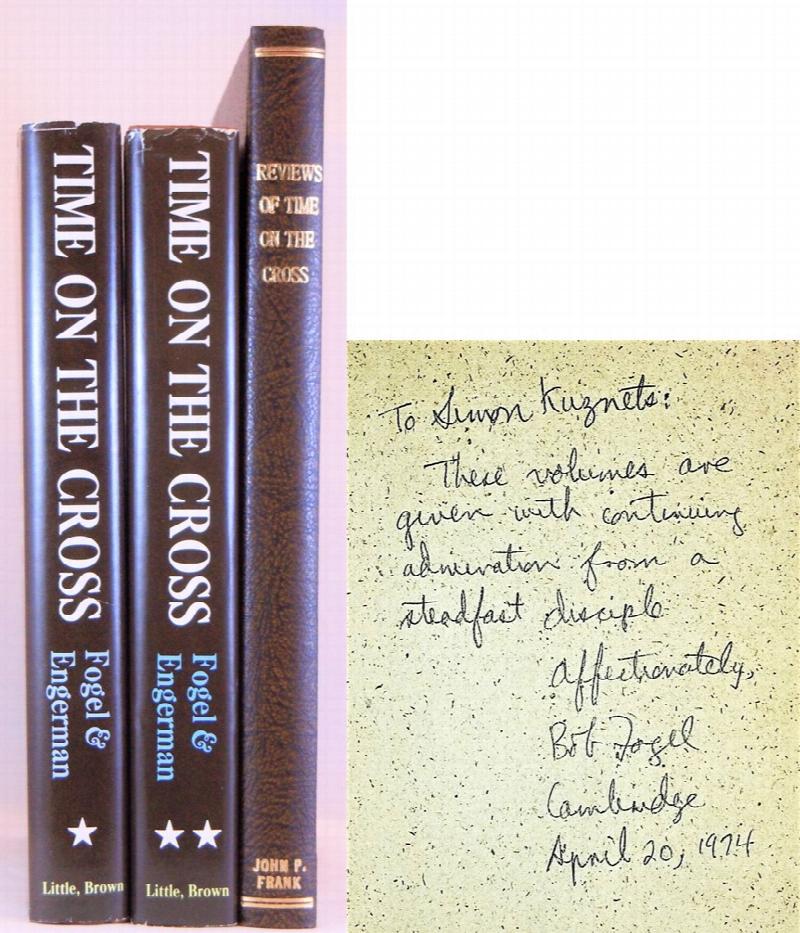 TIME ON THE CROSS
Fogel &
Engerman
Little, Brown
TIME ON THE CROSS
Fogel &
Engerman
Little, Brown
REVIEWS
OF TIME
ON THE
CROSS
JOHN P.
FRANK
To Simon Kuznets:
These volumes are
given with continuing
admiration from a
steadfast disciple
Affectionately,
Bob Fogel
Cambridge
April 20, 1974